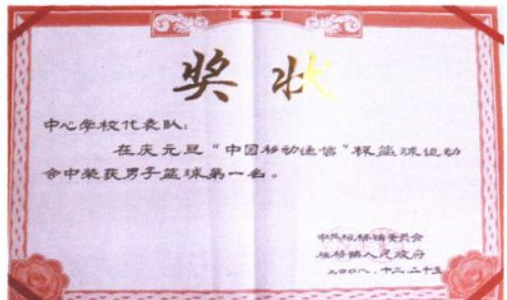 奖状
中心学校代表队:
在庆元旦“中国移动通信”杯篮球运动
会中荣获男子篮球第一名。
中共板桥镇委员会
板桥镇人民政府
二00八、十二、二十五